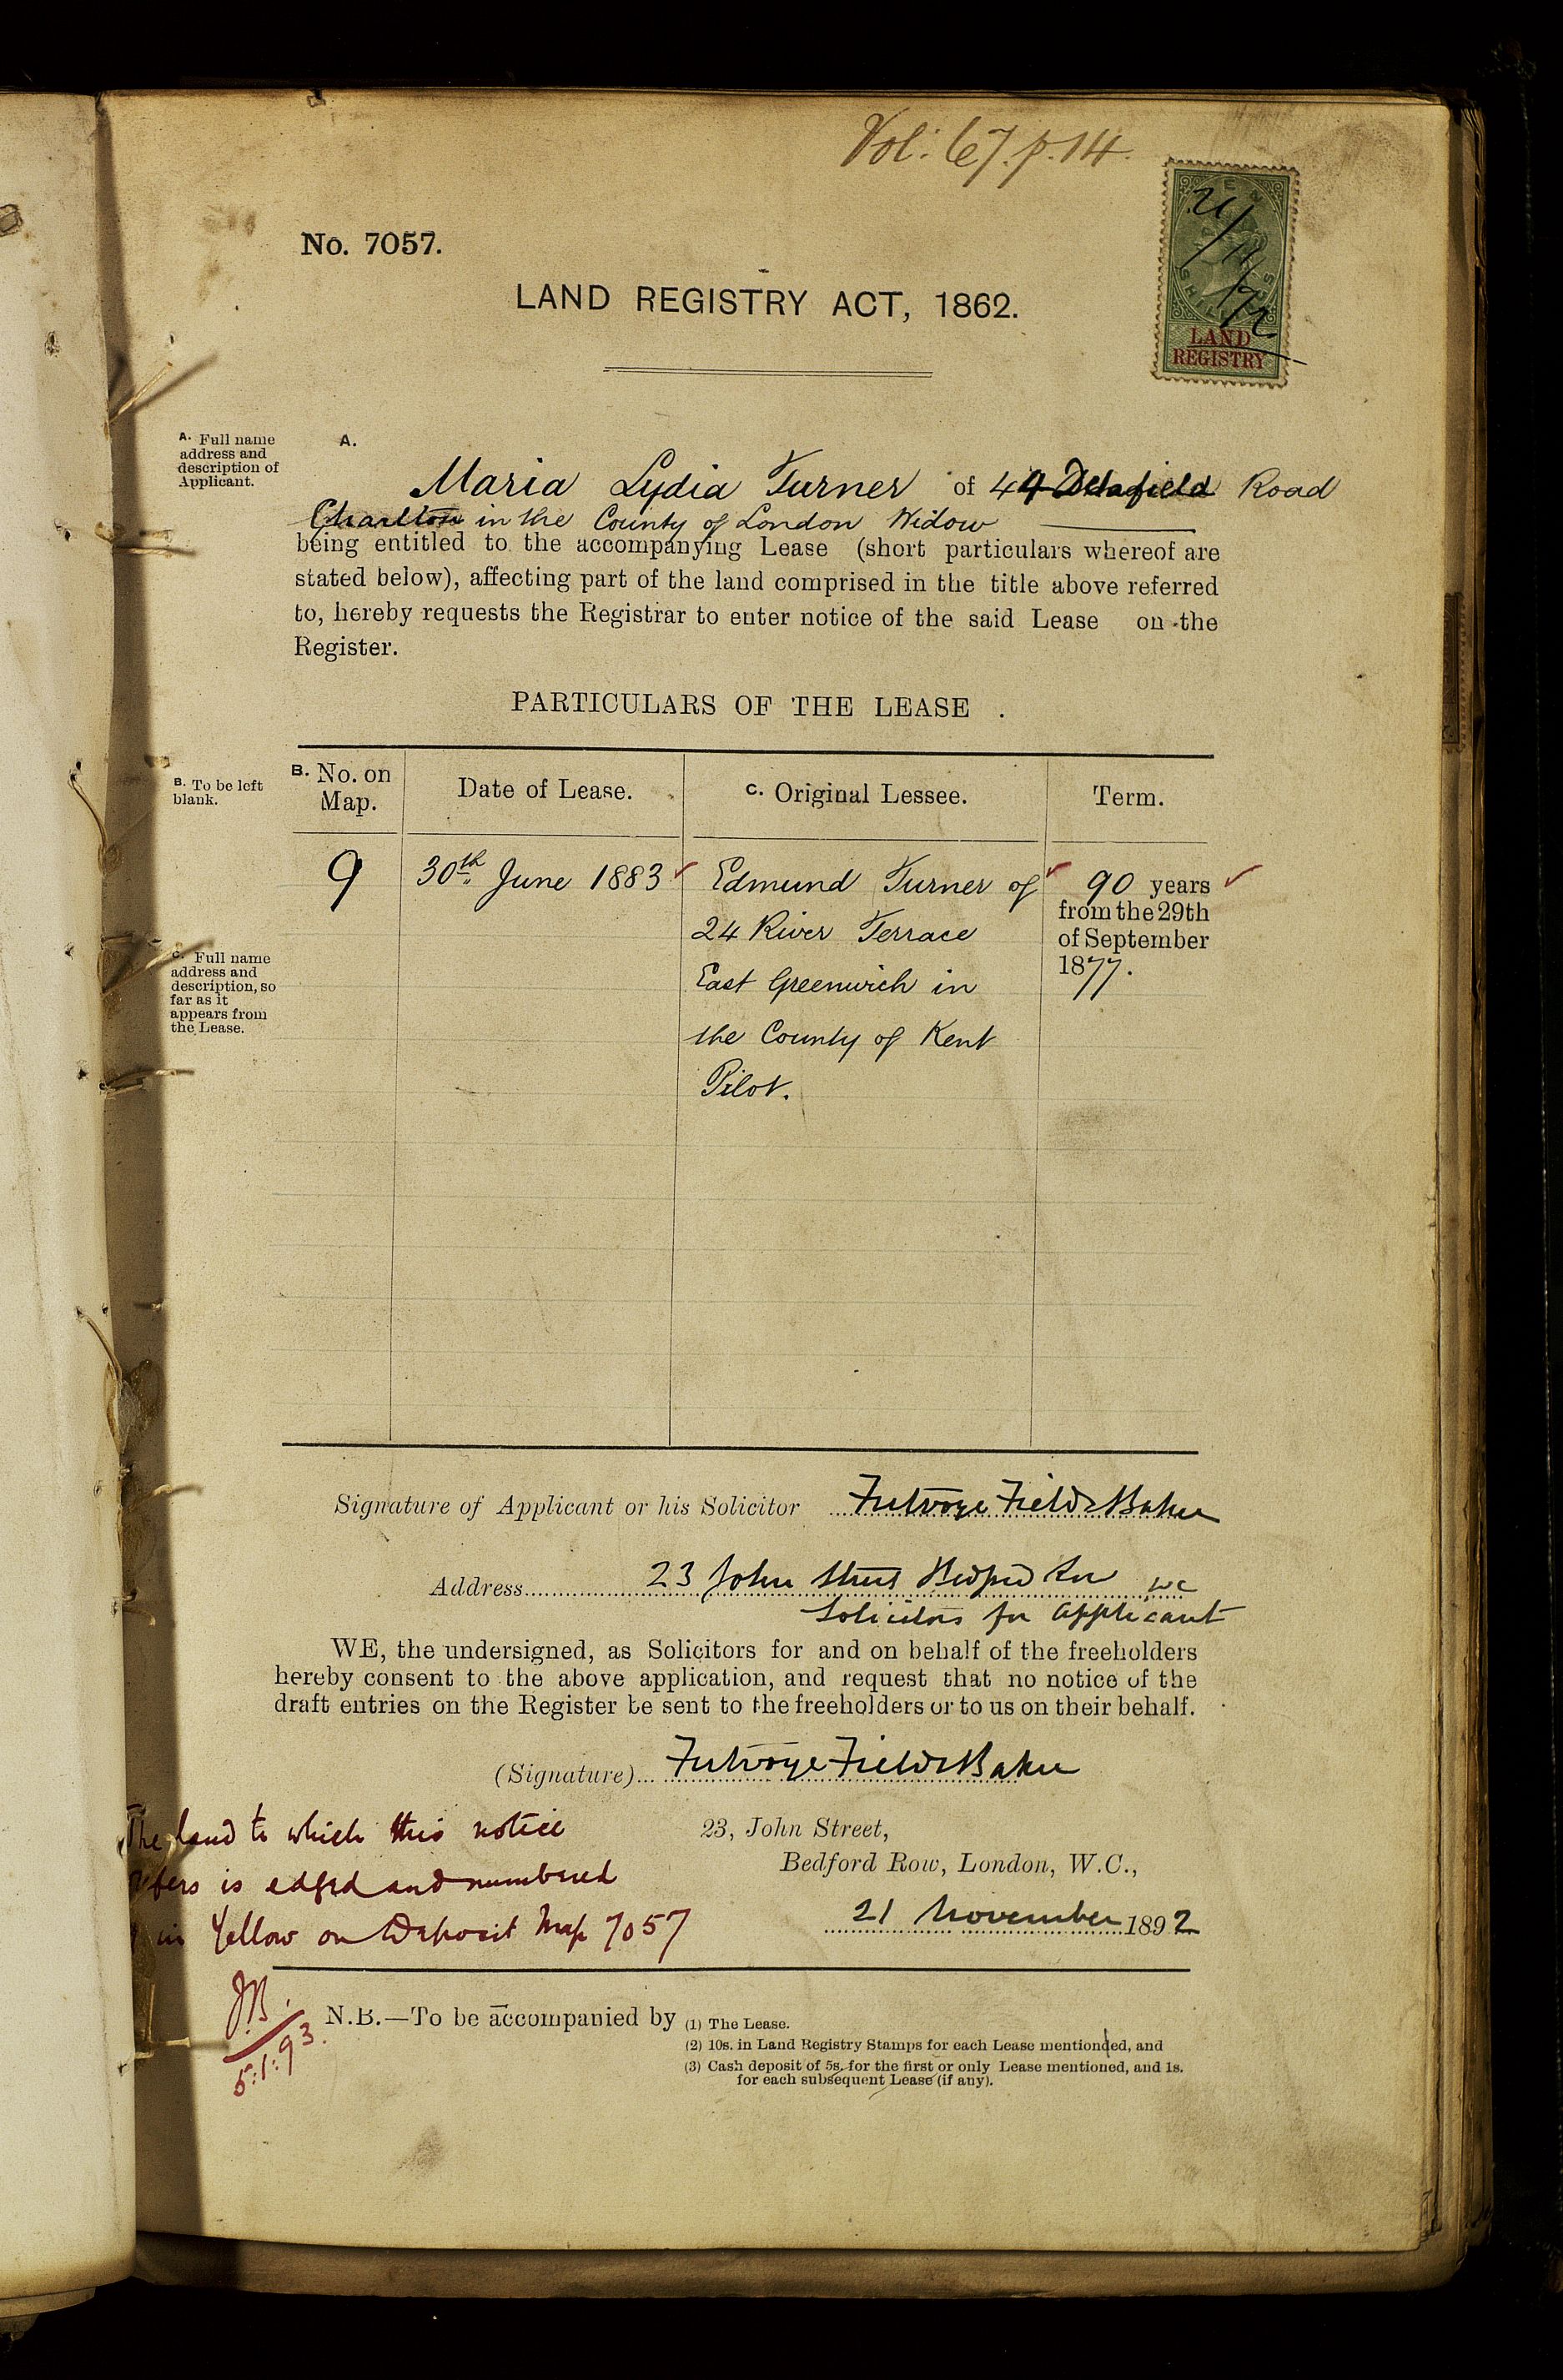 Vol: 67. p. 14.
No. 7057.
LAND REGISTRY ACT, 1862.
21/11/92
LAND
REGISTRY
A. Full name
address and
description of
Applicant.
A.
Maria Lydia Turner of 44 Delafield Road
Charlton in the County of London Widow
being entitled to the accompanying Lease (short particulars whereof are
stated below), affecting part of the land comprised in the title above referred
to, hereby requests the Registrar to enter notice of the said Lease on the
Register.
PARTICULARS OF THE LEASE .
B. To be left
blank.
B. No. on
Map.
Date of Lease.
C. Original Lessee.
Term.
9
30th June 1883
Edmund Turner of
24 River Terrace
East Greenwich in
the County of Kent
Pilot.
90 years
from the 29th
of September
1877.
C. Full name
address and
description, so
far as it
appears from
the Lease.
Signature of Applicant or his Solicitor Futvoye Field & Baker
Address 23 John Street Bedford Row WC
Solicitors for Applicant
WE, the undersigned, as Solicitors for and on behalf of the freeholders
hereby consent to the above application, and request that no notice of the
draft entries on the Register be sent to the freeholders or to us on their behalf.
(Signature) Futvoye Field & Baker
23, John Street,
Bedford Row, London, W.C.,
21 November 1892
The land to which this notice
refers is edged and numbered
in Yellow on Deposit Map 7057
J.B.
5.1.93.
N.B.—To be accompanied by (1) The Lease.
(2) 10s. in Land Registry Stamps for each Lease mentioned, and
(3) Cash deposit of 5s. for the first or only Lease mentioned, and 1s.
for each subsequent Lease (if any).